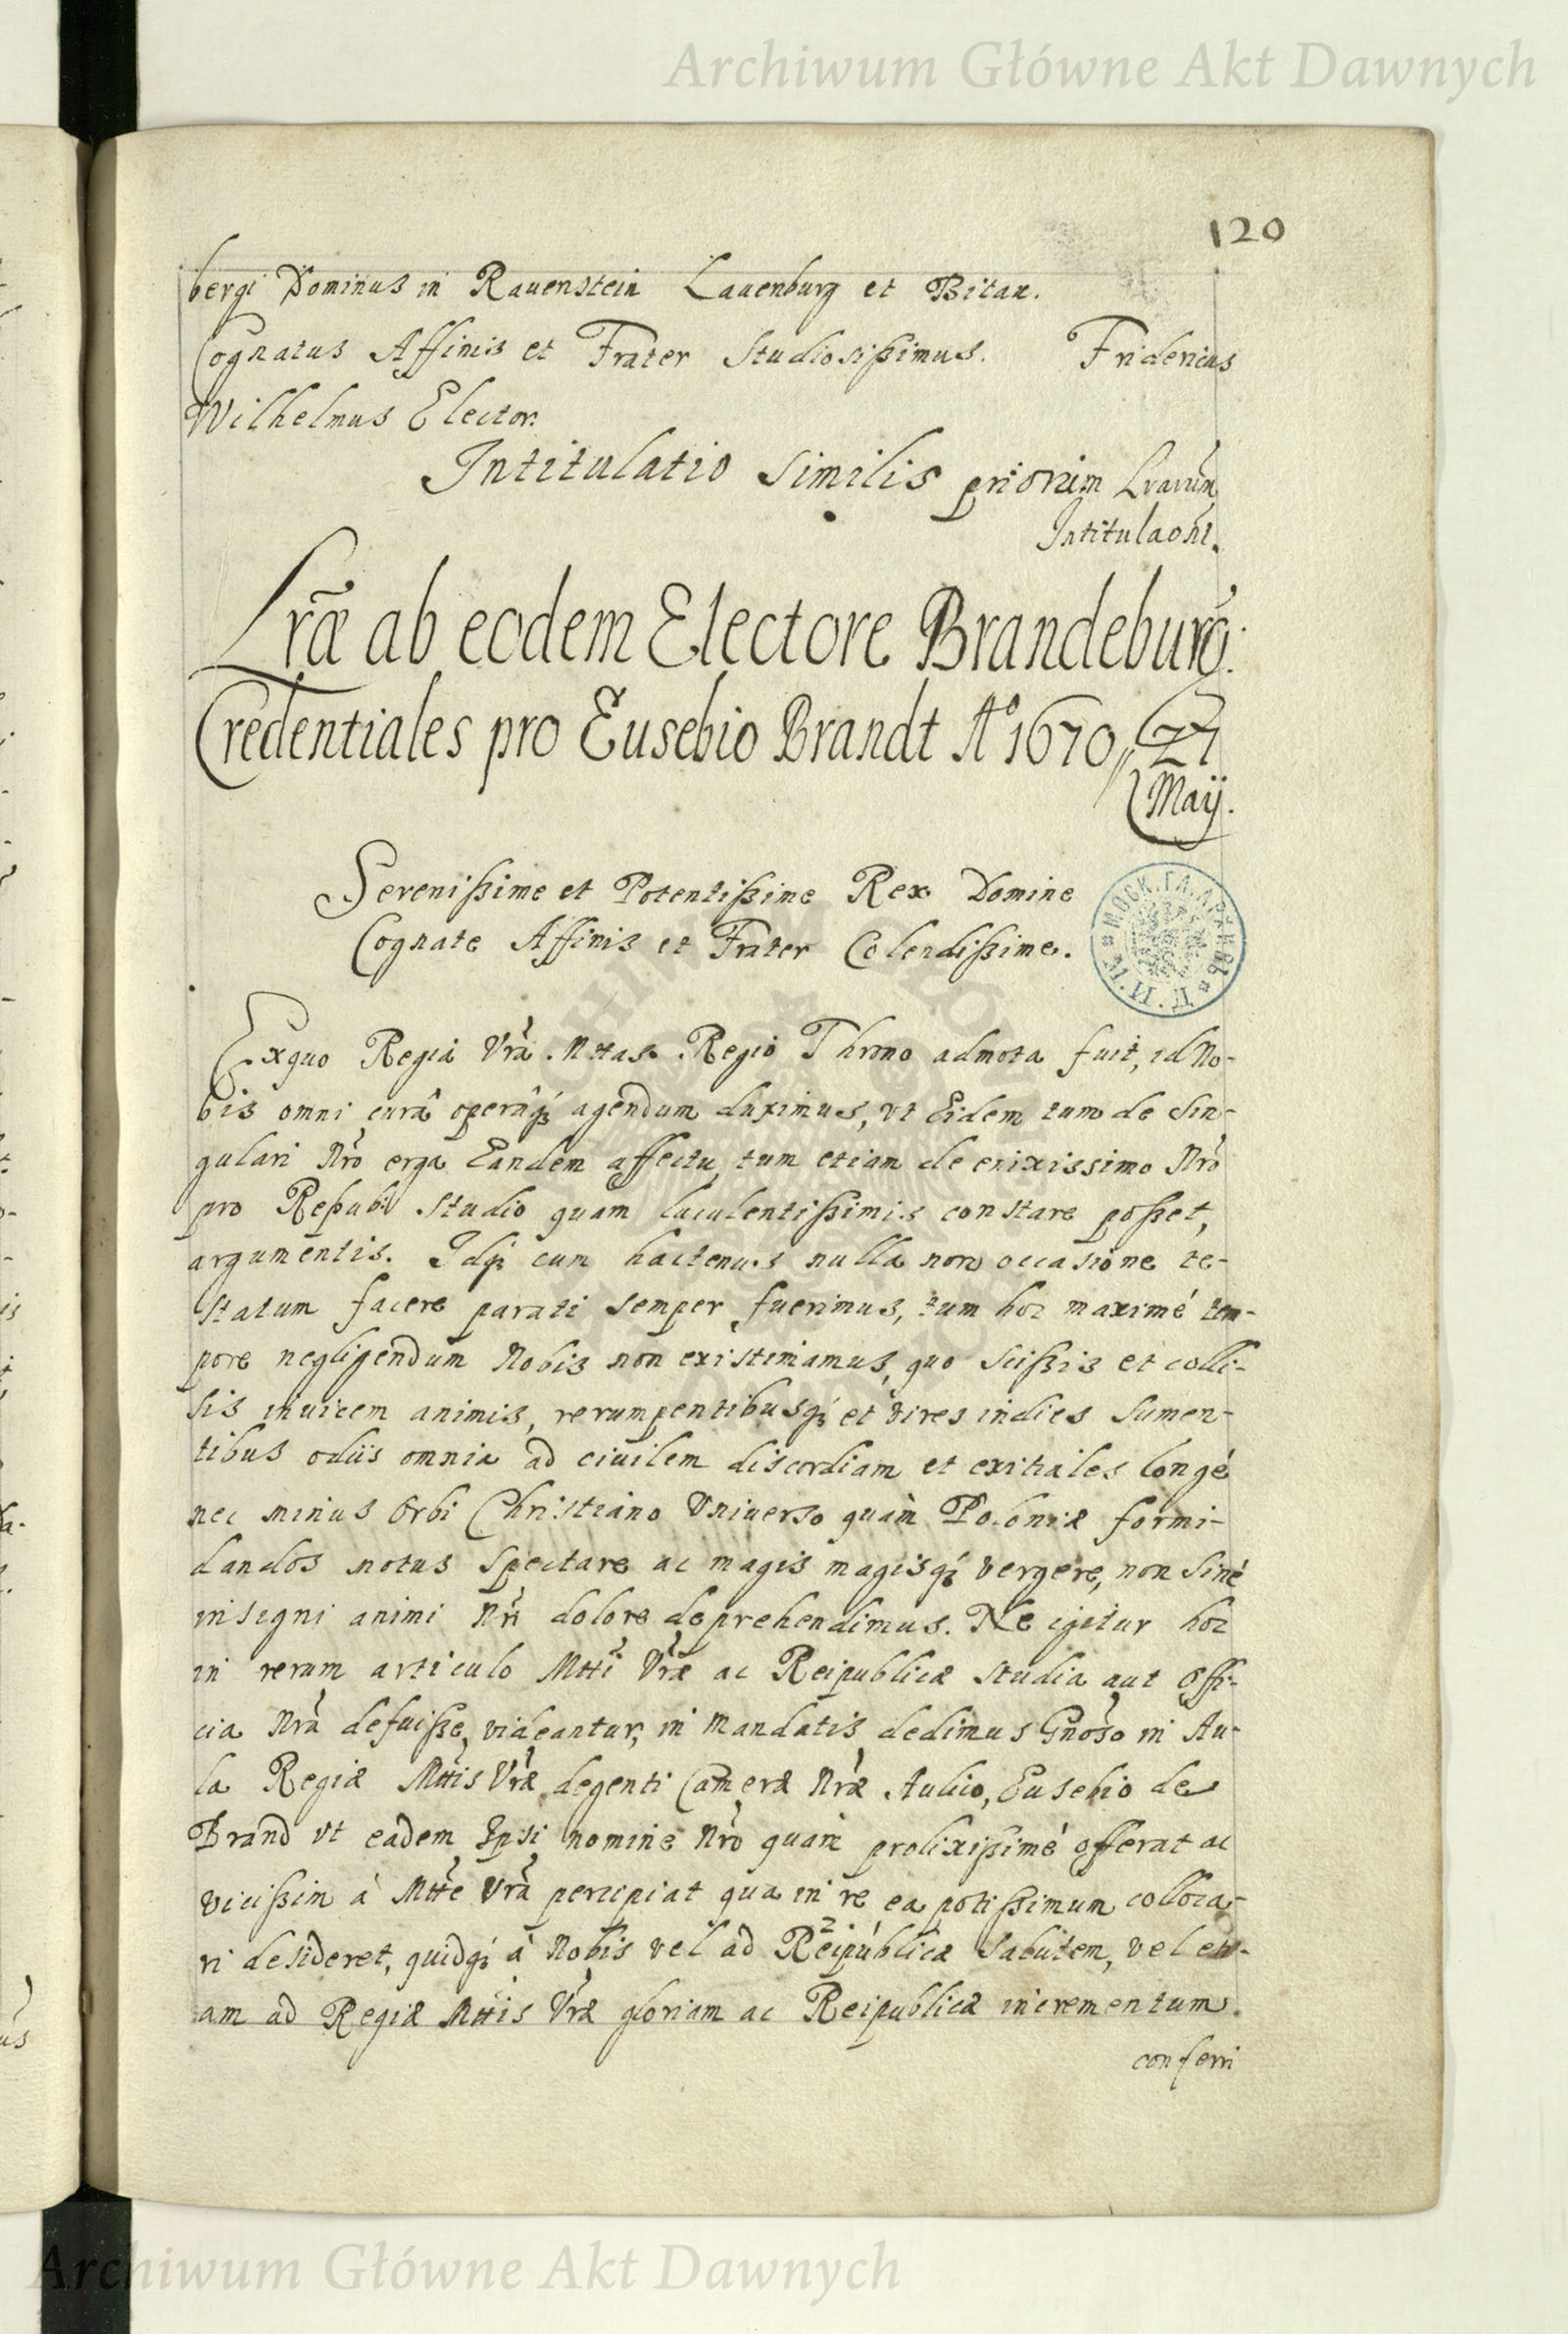 Archiwum Główne Akt Dawnych
120
bergi Dominus in Rauenstein Lauenburg et Bitau.
Cognatus Affinis et Frater Studiosißimus. Fridericus
Wilhelmus Elector.
Intitulatio similis priorum Lrarum
Intitulaoni.
Lræ ab eodem Electore Brandeburg:
Credentiales pro Eusebio Brandt Aº 1670 // 27
Maÿ.
Serenißime et Potentißime Rex Domine
Cognate Affinis et Frater Colendißime.
МОСК. ГЛ. АРХИВЪ
Exquo Regia Vrã Mttas Regio Throno admota fuit, id No-
bis omni curâ operâq; agendum duximus, vt Eidem tum de sin-
gulari Nrõ erga Eandem affectu tum etiam de enixissimo Nrõ
pro Repub: studio quam luculentißimis constare poßet,
argumentis. Idq; cum hactenus nulla non occasione te-
statum facere parati semper fuerimus, tum hoc maximé tem-
pore negligendum Nobis non existimamus, quo scißis et colli-
sis inuicem animis, rerumpentibusq; et vires indies sumen-
tibus odiis omnia ad ciuilem discordiam et exitiales longé
nec minus Orbi Christiano Vniuerso quàm Poloniæ formi-
dandos motus spectare ac magis magisq; vergere, non siné
insigni animi Nrĩ dolore deprehendimus. Ne igitur hoc
in rerum articulo Mtti Vræ ac Reipublicæ studia aut offi-
cia Nrã defuiße videantur, in mandatis dedimus Gnõso in Au-
la Regiæ Mttis Vræ degenti Cameræ Nræ Aulico, Eusebio de
Brand vt eadem Ipsi nomine Nrõ quàm prolixißimé offerat ac
vicißim à Mtte Vrã percipiat qua in re ea potißimum colloca-
ri desideret, quidq; à Nobis vel ad Reipublicæ salutem, vel eti-
am ad Regiæ Mttis Vræ gloriam ac Reipublicæ incrementum
conferri
Archiwum Główne Akt Dawnych